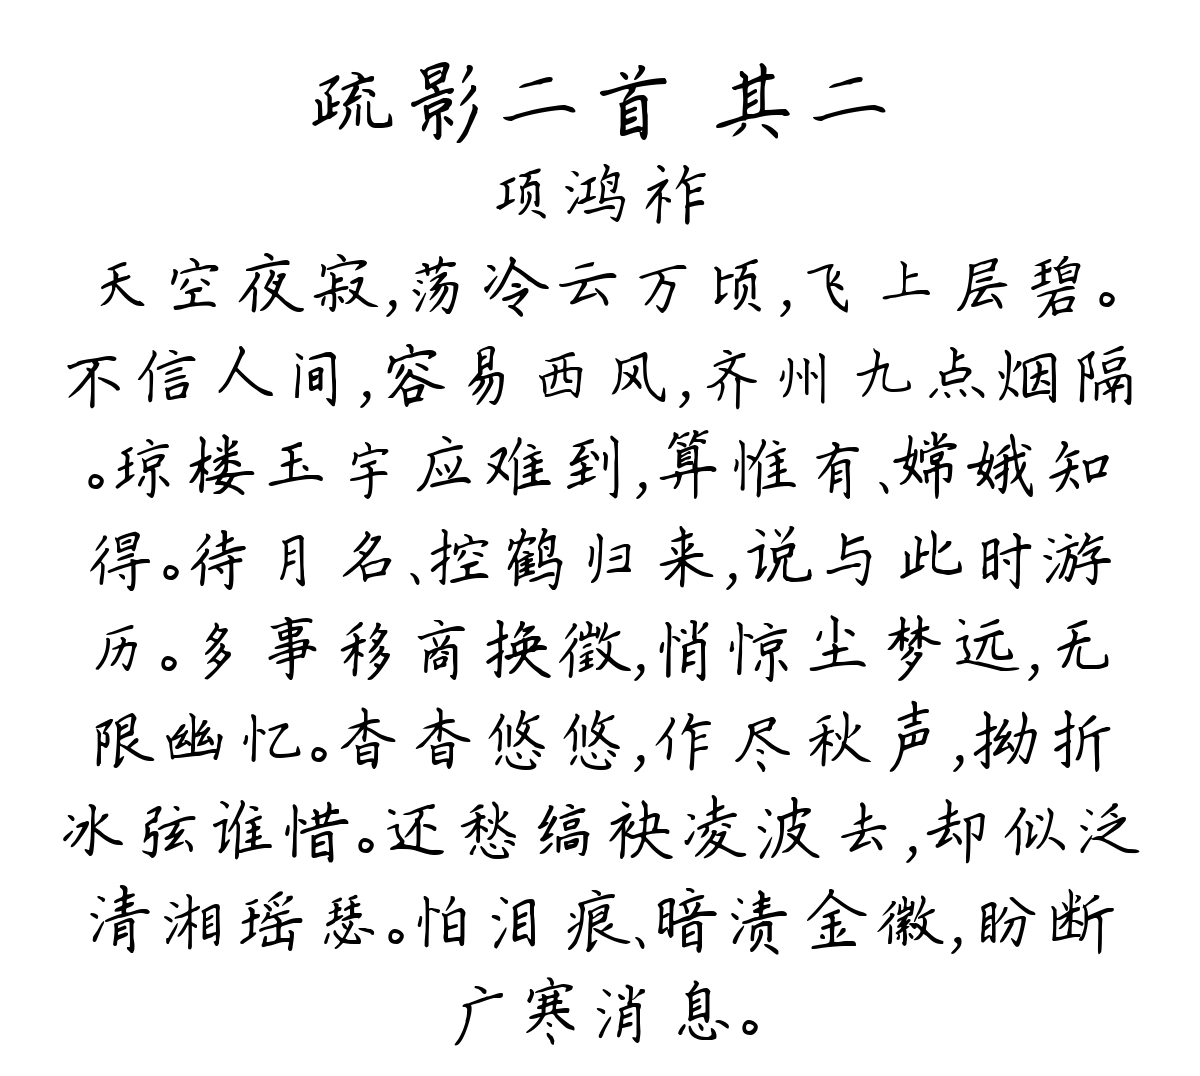 疏影二首 其二
项鸿祚
天空夜寂,荡冷云万顷,飞上层碧。
不信人间,容易西风,齐州九点烟隔
。琼楼玉宇应难到,算惟有、嫦娥知
得。待月名、控鹤归来,说与此时游
历。多事移商换徵,悄惊尘梦远,无
限幽忆。杳杳悠悠,作尽秋声,拗折
冰弦谁惜。还愁缟袂凌波去,却似泛
清湘瑶瑟。怕泪痕、暗渍金徽,盼断
广寒消息。